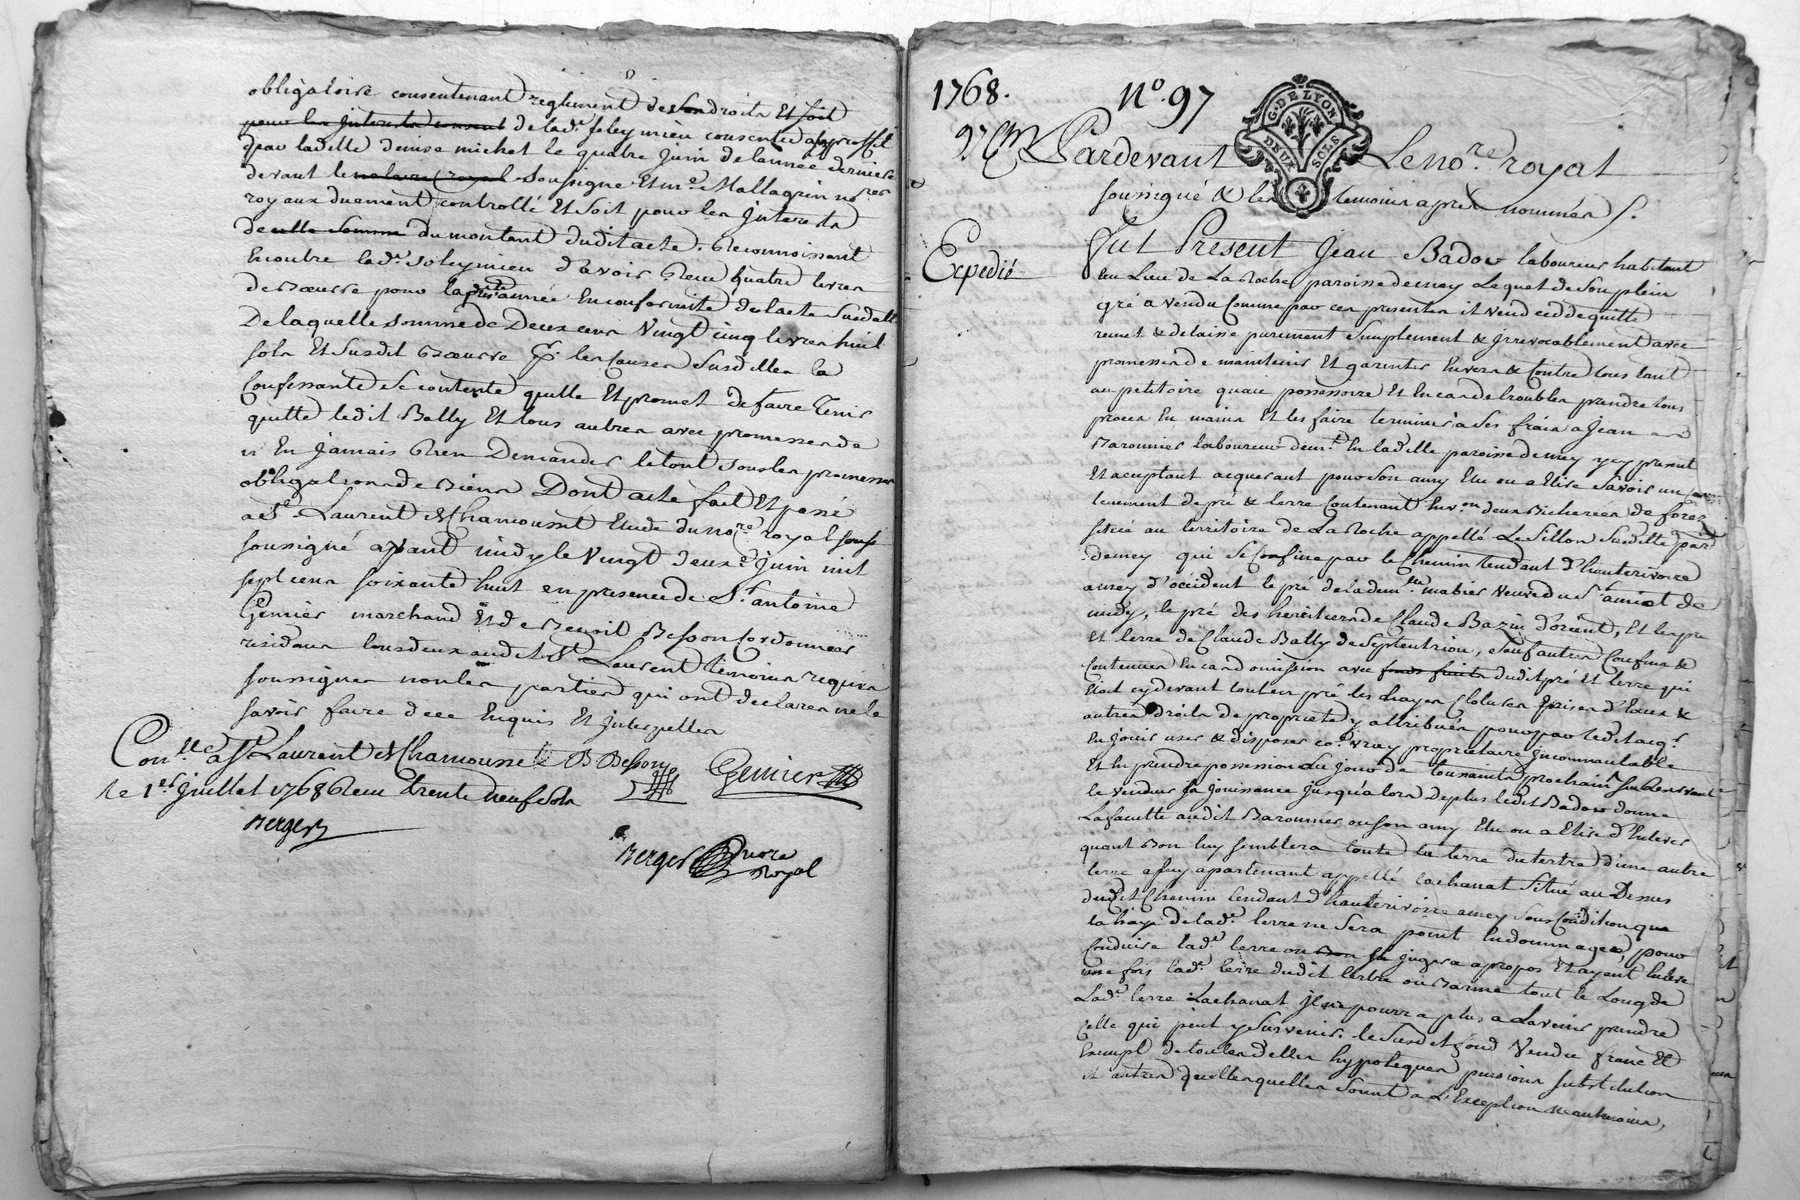 obligatoire consentenant reglement de ses droits Et soit
pour les Interests de lad.e Soleymieu consentie
par ladelle denise michel le quatre Juin de lannée derniere
devant le notaire royal Soussigné Et m.e Mallagrin no.res
royaux duement controllé Et Soit pour les Interests
de celle Somme du montant dudit acte. Reconnoissant
Encoutre lad.e Soleymieu d'avoir Reçu quatre livres
de Bœurre pour la année En conformité de lacte Susdatté
De laquelle somme de Deux cens Vingt cinq livres huit
sols Et Susdit Bœurre les Causes Susdittes la
Confessante Se contente quitte Et promet de faire tenir
quitte ledit Bally Et tous autres avec promesse de
n'En Jamais Rien Demander le tout sous les promesses
obligations de Biens Dont acte fait Et passé
a S.t Laurent de Chamousset Etude du no.re royal
soussigné avant midy le Vingt deux.e Juin mil
sept cens soixante huit en presence de S.r antoine
Gemier marchand Et de Benoit Besson Cordonnier
residans tous deux audit S.t Laurent temoins requis
soussignés non les parties qui ont declaré ne le
savoir faire de ce Enquis Et interpellés
Con.llé a S.t Laurent de Chamousset B Besson Gemier
le 1.er Juillet 1768 Reçu trente neuf Sols
Berger
Berger no.re
Royal
1768. N.o 97
G. DE LYON
DEUX SOLS
Pardevant Le no.re royal
soussigné & les temoins apres nommés S.
Expedié
Fut Present Jean Badou laboureur habitant
au Lieu de La Roche paroisse de mey Lequel de Son plein
gré a vendu Comme par ces presentes il Vend cedde quitte
remet & delaisse purement Simplement & Irrevocablement avec
promesse de maintenir Et garentir Envers & Contre tous tant
au petitoire qu'au possessoire Et En cas de troubles prendre tous
procès En mains Et les faire terminer a Ses frais a Jean
Baronnier laboureur dem.t En laditte paroisse de mey ycy present
Et acceptant acquerant pour Son amy Elu ou a Elire Savoir un
tenement de pré & terre Contenant Env.on deux Bicherées de forez
situé au territoire de La Roche appellé Le Sillon Susditte par.
de mey qui Se Confine par le Chemin tendant d'hauterivoire
a mey d'occident le pré de la dem.lle mabier Veuve du S.r amiot de
midy, le pré des heritiers de Claude Bazin d'orient, Et les pré
Et terre de Claude Bally de Septentrion, Sauf autres Confins &
Contenues En cas d'omission avec fonds fruits dudit pré Et terre qui
Etoit cy devant tout en pré les hayes Clotures prises d'Eaux &
autres droits de proprieté y attribués pour par ledit acq.r
En jouir user & disposer co.e Vray proprietaire Incommutable
Et En prendre possession du jour de toussaints prochain Se reservant
le vendeur la jouissance jusqu'a lors De plus ledit Badou donne
La faculté audit Baronnier ou son amy Elu ou a Elire d'Enlever
quant Bon luy semblera toute la terre du tertre d'une autre
terre a luy apartenant appellé Lachanat Situé au Dessus
dudit Chemin tendant d'hauterivoire a mey Sous Condition que
la haye de lad.e terre ne Sera point Endommagée, pour
Conduire lad.e terre ou bon jugera apropos Et ayant Enlevé
une fois lad.e terre dudit tertre ou Banme tout le Long de
Lad.e terre Lachanat Il ne pourra plus a Lavenir prendre
Celle qui peut y Survenir. le Susdit fond Vendu franc Et
Exempt de toutes dettes hypoteques pensions Substitution
Et autres quelles quelles Soint a L'Exception neanmoins,